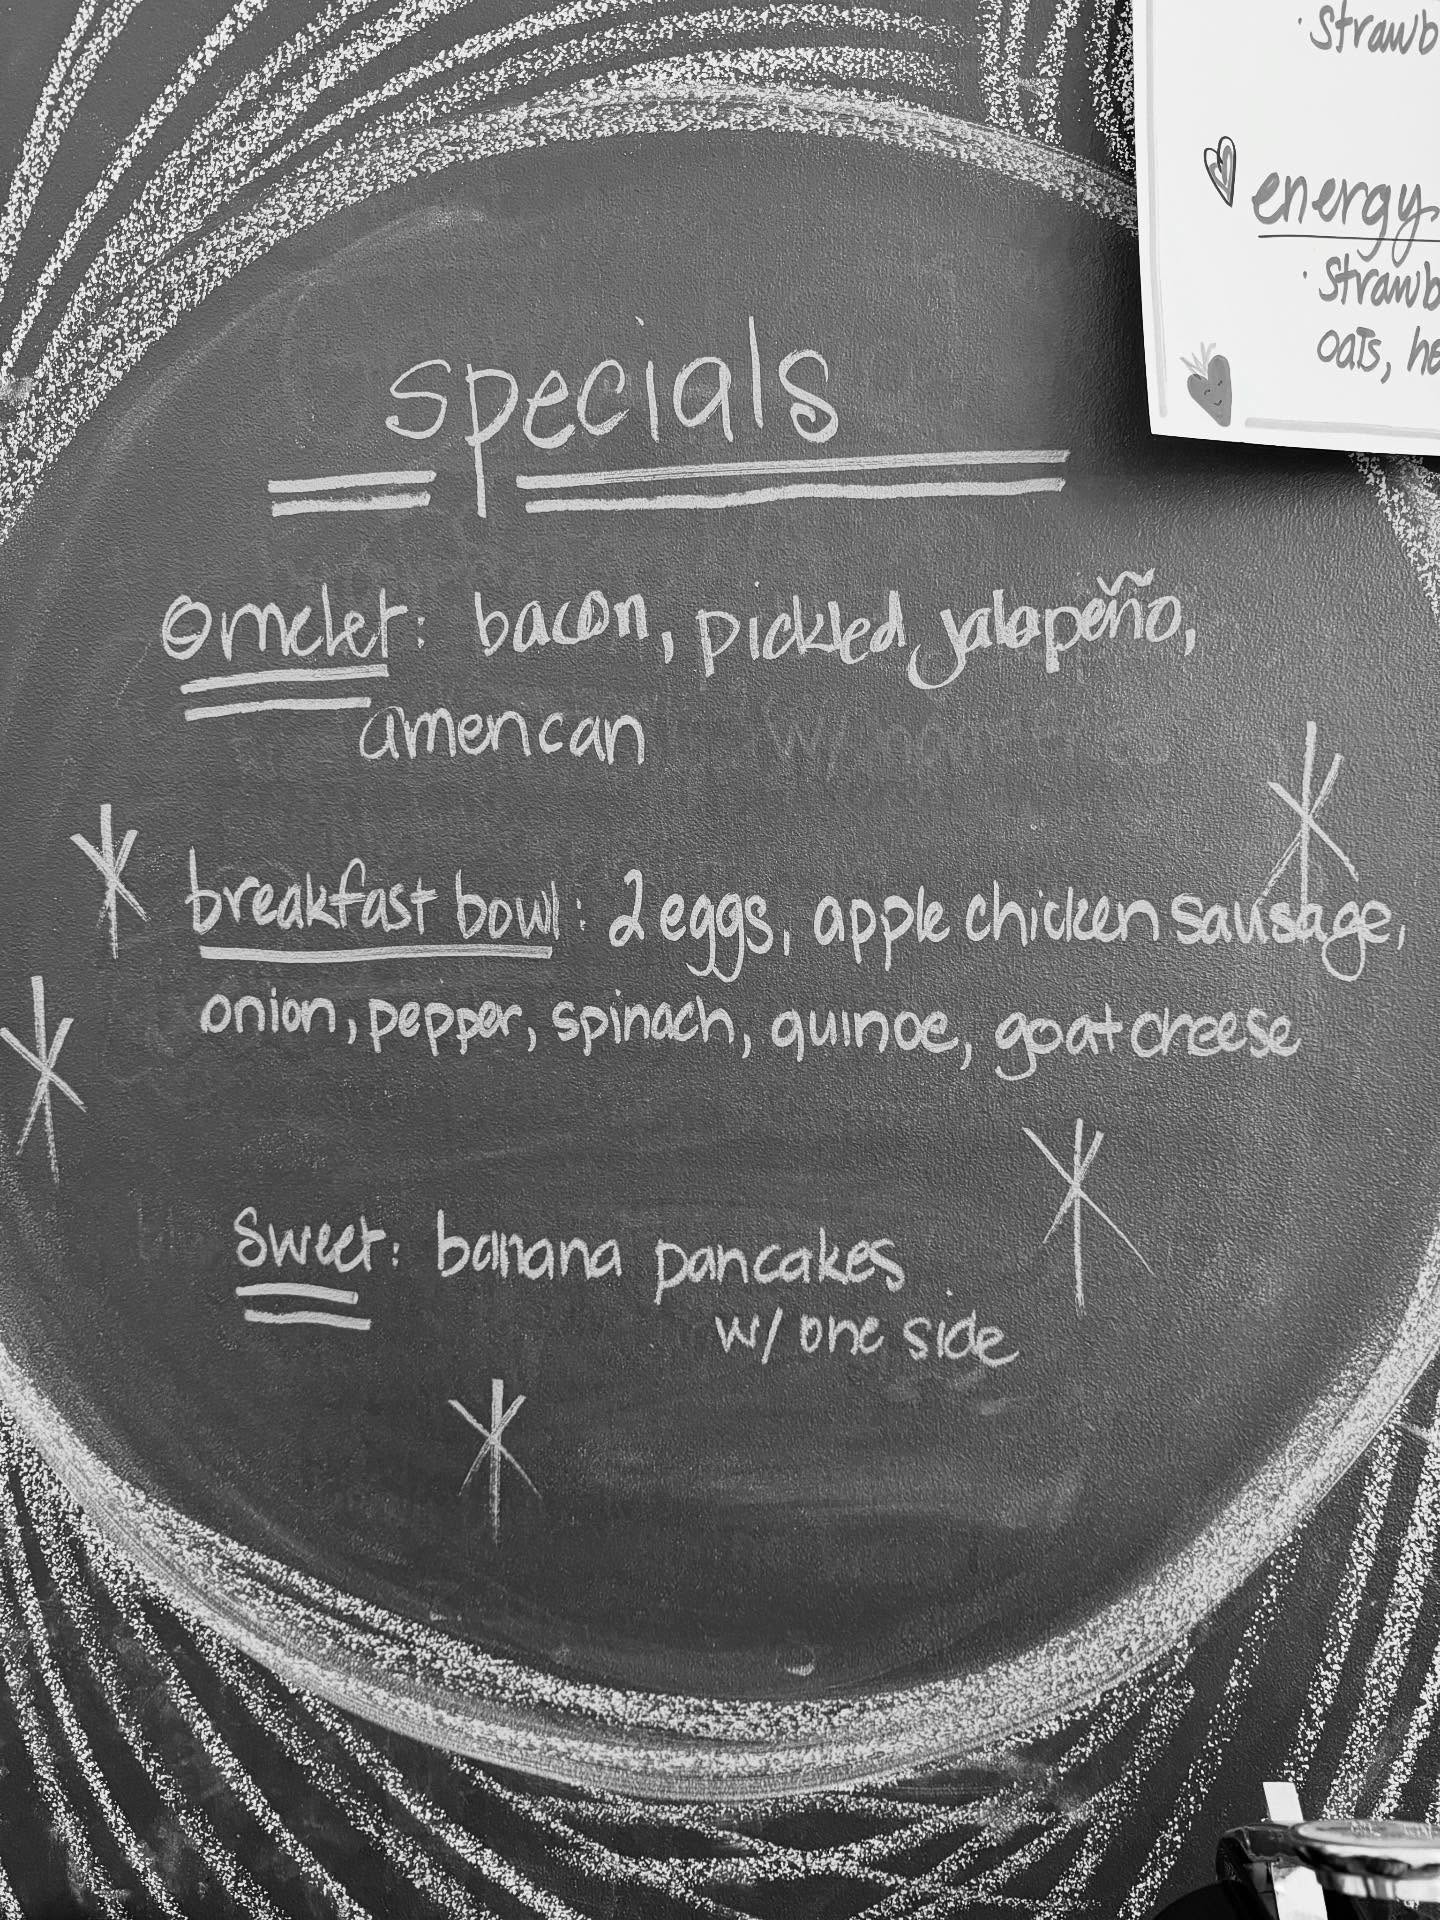 Specials
Omelet: bacon, pickled jalapeño,
american
breakfast bowl: 2 eggs, apple chicken sausage,
onion, pepper, spinach, quinoe, goat cheese
Sweet: banana pancakes
w/ one side
· Strawb
energy
· Strawb
oats, he